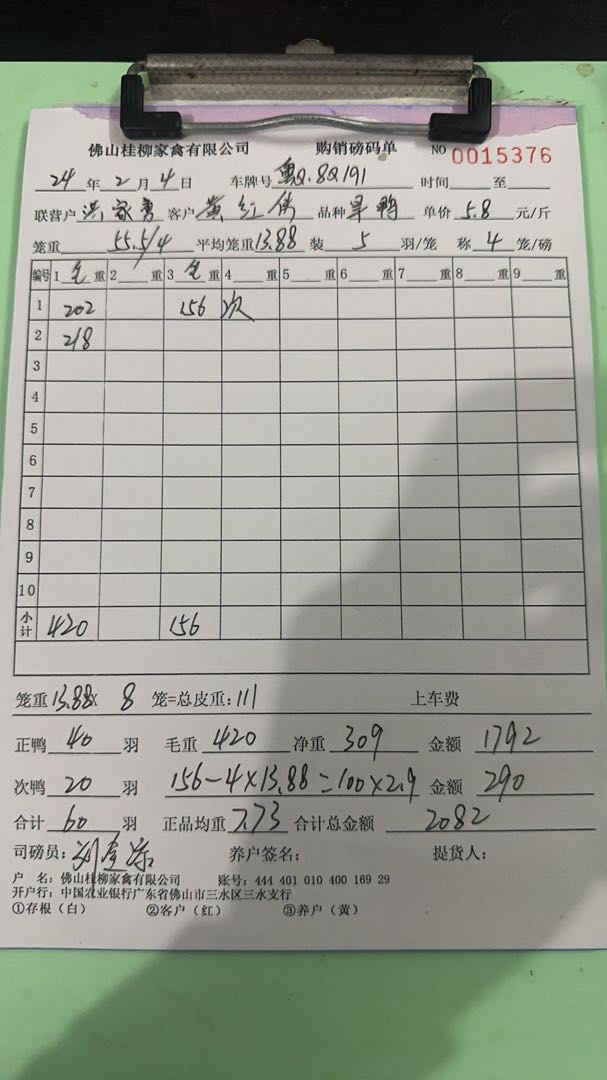 佛山桂柳家禽有限公司 购销磅码单 NO 0015376
24 年 2 月 4 日 车牌号 粤Q.8Q191 时间 至
联营户 洪家 客户 黄红 品种 旱鸭 单价 5.8 元/斤
笼重 55.5/4 平均笼重 13.88 装 5 羽/笼 称 4 笼/磅
编号 1 毛 重 2 重 3 毛 重 4 重 5 重 6 重 7 重 8 重 9 重
1 202 156 次
2 218
3
4
5
6
7
8
9
10
小计 420 156
笼重 13.88 X 8 笼=总皮重: 111 上车费
正鸭 40 羽 毛重 420 净重 309 金额 1792
次鸭 20 羽 156-4×13.88=100×2.9 金额 290
合计 60 羽 正品均重 7.73 合计总金额 2082
司磅员: 养户签名: 提货人:
户 名: 佛山桂柳家禽有限公司 账号: 444 401 010 400 169 29
开户行: 中国农业银行广东省佛山市三水区三水支行
①存根（白） ②客户（红） ③养户（黄）